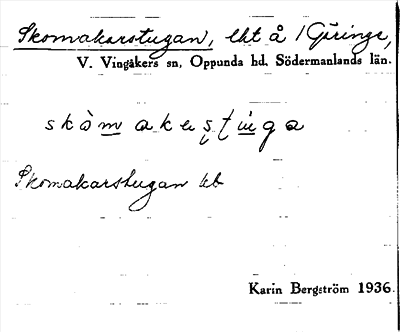 Skomakarstugan, lht å /Göringe,
V. Vingåkers sn, Oppunda hd, Södermanlands län.
Skomakarstugan
Karin Bergström 1936.